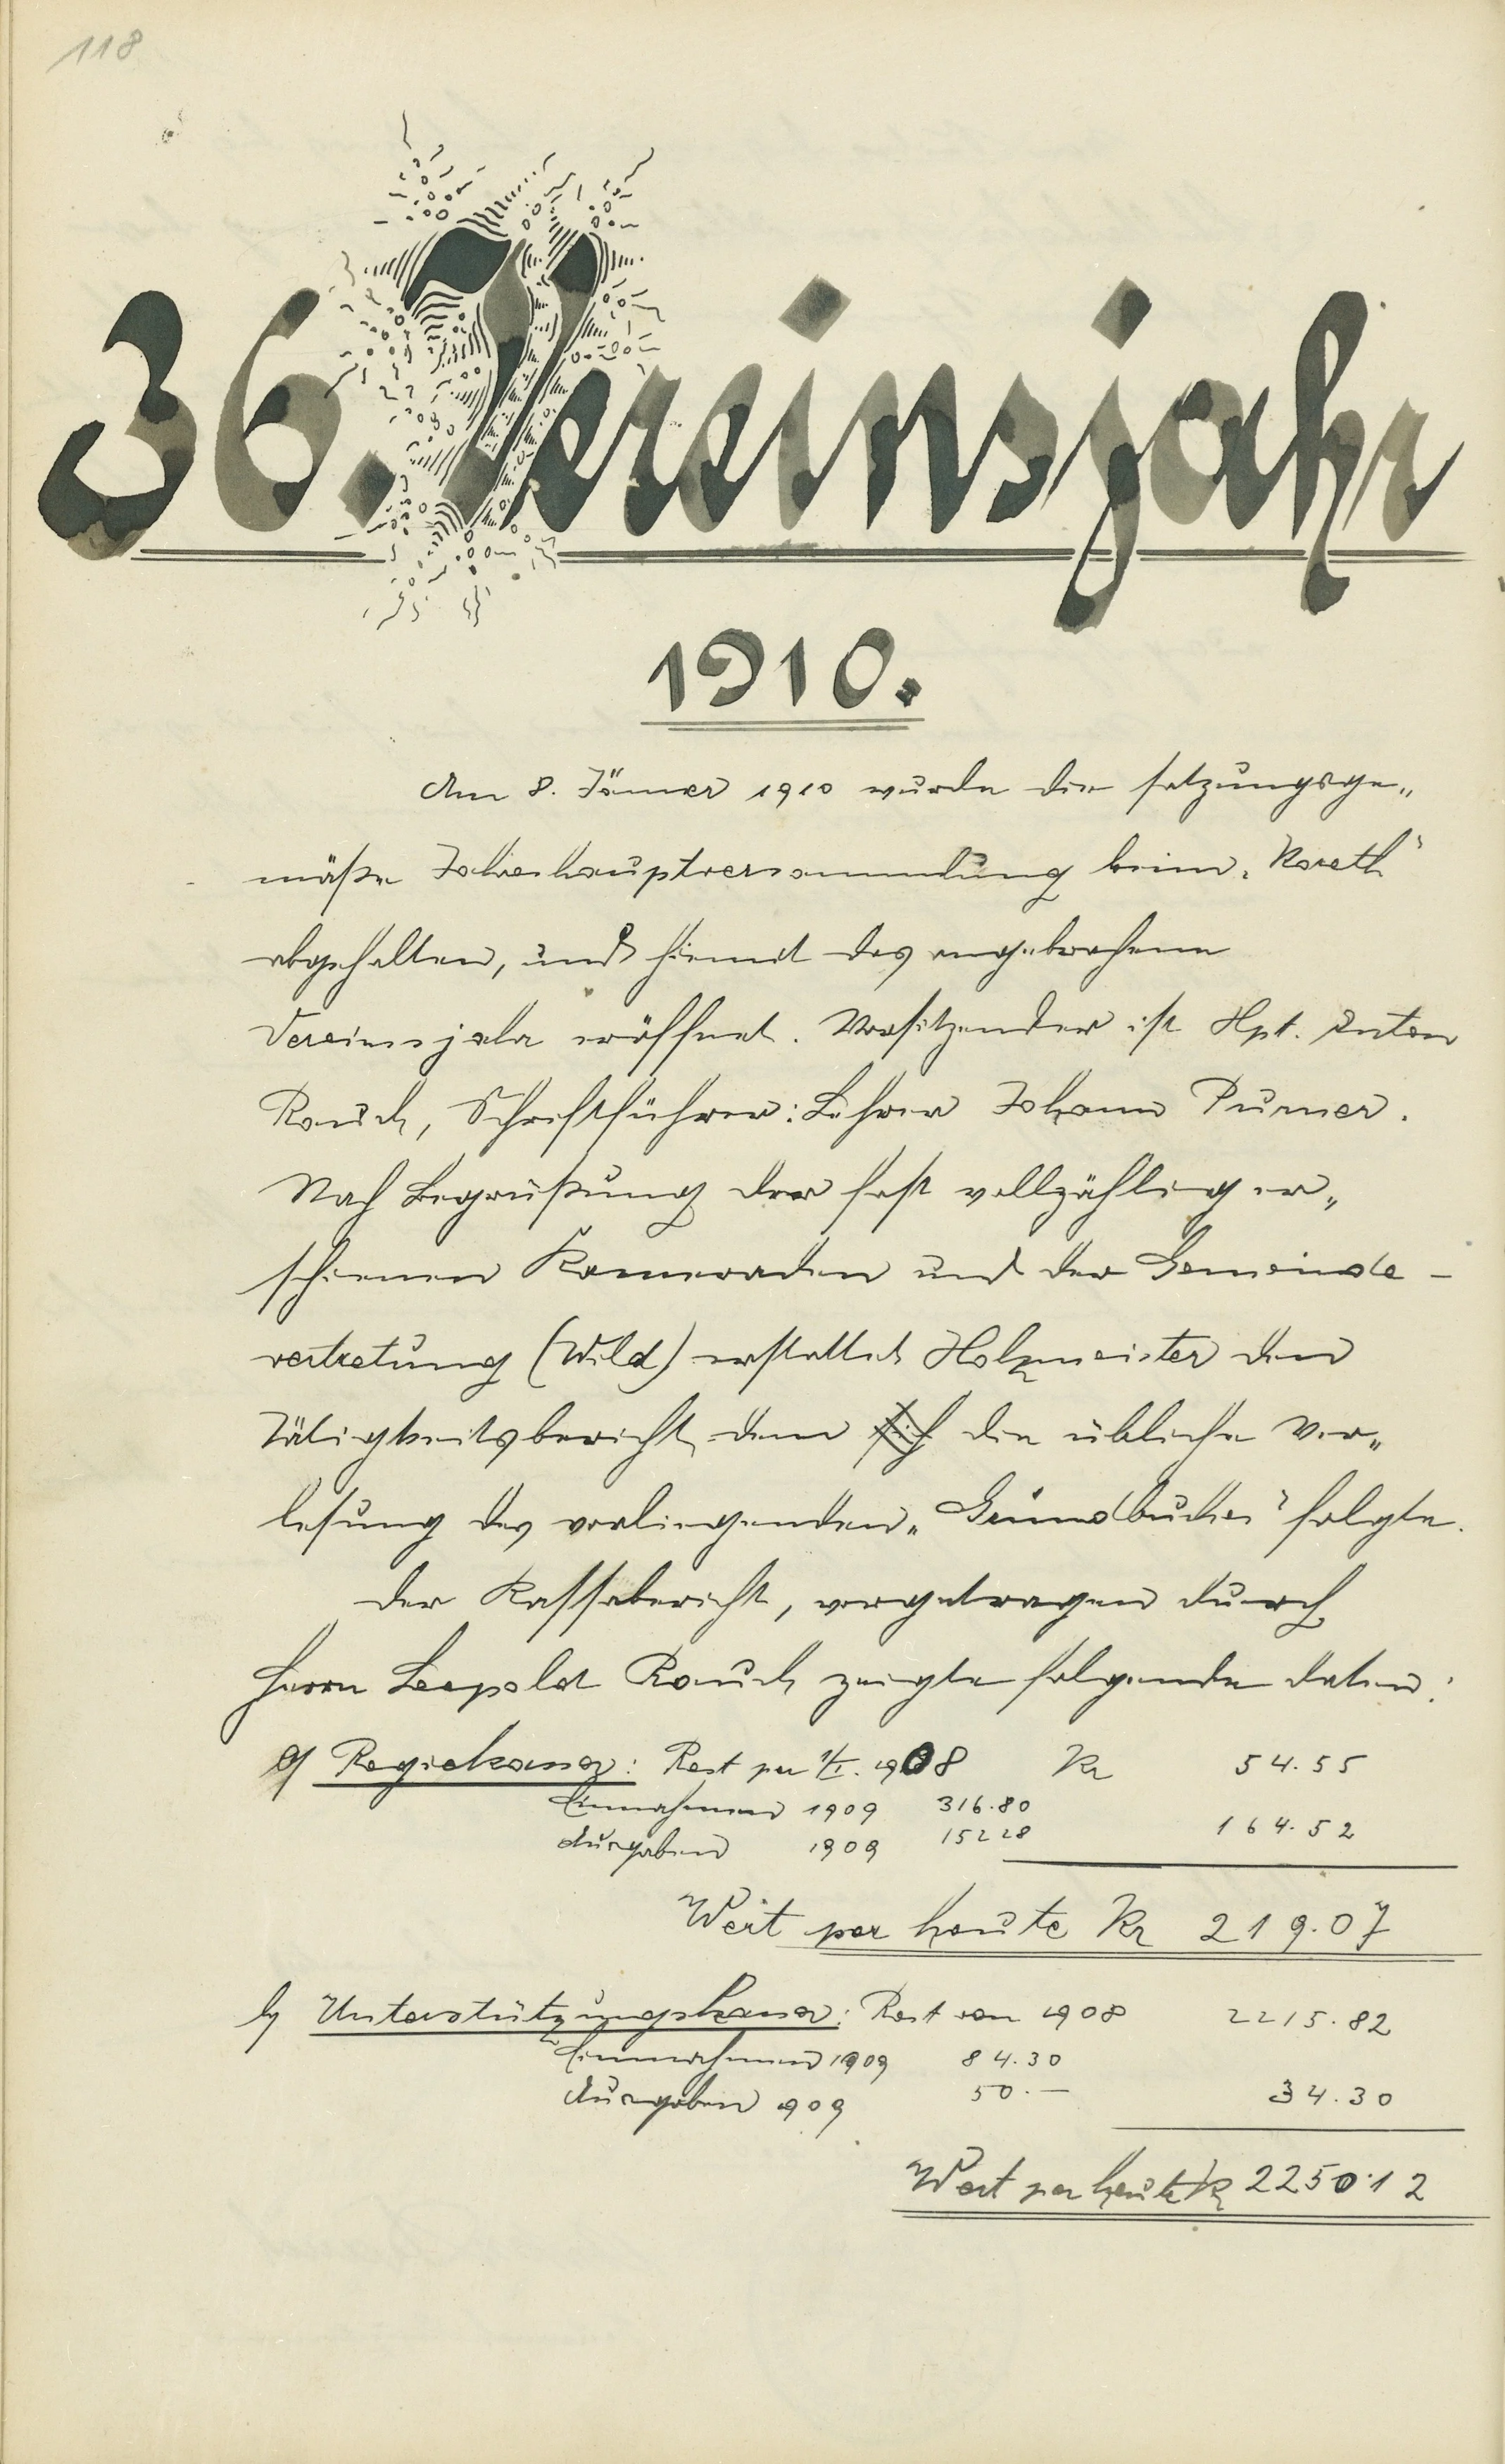 118
36. Vereinsjahr
1910.
Am 8. Jänner 1910 wurde die satzungsge„
mäße Jahreshauptversammlung beim „Koreth“
abgehalten, und hiemit das angebrochene
Vereinsjahr eröffnet. Vorsitzender ist Hpt. Anton
Rauch, Schriftführer: Lehrer Johann Purner.
Nach Begrüßung der fast vollzählig er„
schienen Kameraden und der Gemeinde-
vertretung (Wild) erstattet Holzmeister den
Tätigkeitsbericht, dem sich die übliche Ver„
lesung des vorliegenden „Grundbuches“ folgte.
Der Kassabericht, vorgetragen durch
Herrn Leopold Rauch zeigte folgende Daten:
a) Regiekassa: Rest per 1/I. 1908 Kr 54.55
Einnahmen 1909 316.80
Ausgaben 1909 152 28 164.52
Wert per heute Kr 219.07
b) Unterstützungskassa: Rest von 1908 2215.82
Einnahmen 1909 84.30
Ausgaben 909 50.— 34.30
Wert per heute Kr 2250.12